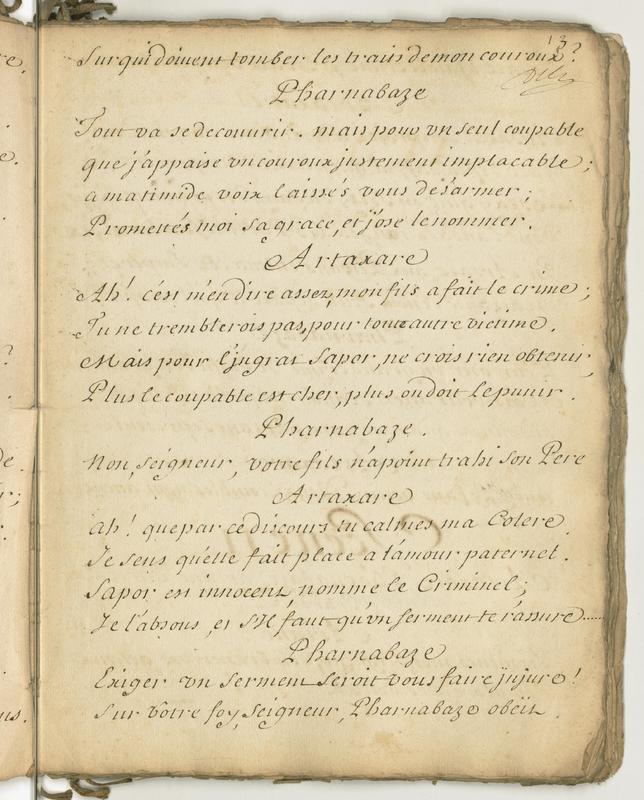 13
Sur qui doivent tomber les traits de mon couroux ?
Pharnabaze
Tout va se decouvrir. mais pour vn seul coupable
que j'appaise vn couroux justement implacable ;
a ma timide voix laissés vous desarmer ;
Promettés moi sa grace, et j'ose le nommer.
Artaxare
Ah! c'est m'en dire assez, mon fils a fait le crime ;
Tu ne tremblerois pas, pour toute autre victime.
Mais pour l'jngrat Sapor, ne crois rien obtenir,
Plus le coupable est cher, plus on doit le punir.
Pharnabaze.
Non, seigneur, votre fils n'a point trahi son Pere
Artaxare
ah! que par ce discours tu calmes ma Colere
Je sens qu'elle fait place a l'amour paternel.
Sapor est innocent, nomme le Criminel ;
Je l'absous, et s'il faut qu'vn serment te rassure.....
Pharnabaze
Exiger vn serment seroit vous faire jnjure !
Sur vôtre foy, seigneur, Pharnabaze obëit.